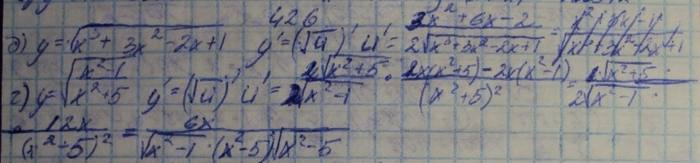 426
д) y = √(x³ + 3x² - 2x + 1)   y' = (√u)' u' = (3x² + 6x - 2) / (2√(x³ + 3x² - 2x + 1)) =
г) y = √((x² - 1)/(x² + 5))   y' = (√u)' u' = √(x² + 5) / (2√(x² - 1)) · (2x(x² + 5) - 2x(x² - 1)) / (x² + 5)² = √(x² + 5) / (2√(x² - 1)) ·
· 12x / (x² + 5)² = 6x / (√(x² - 1) · (x² - 5) √(x² - 5))